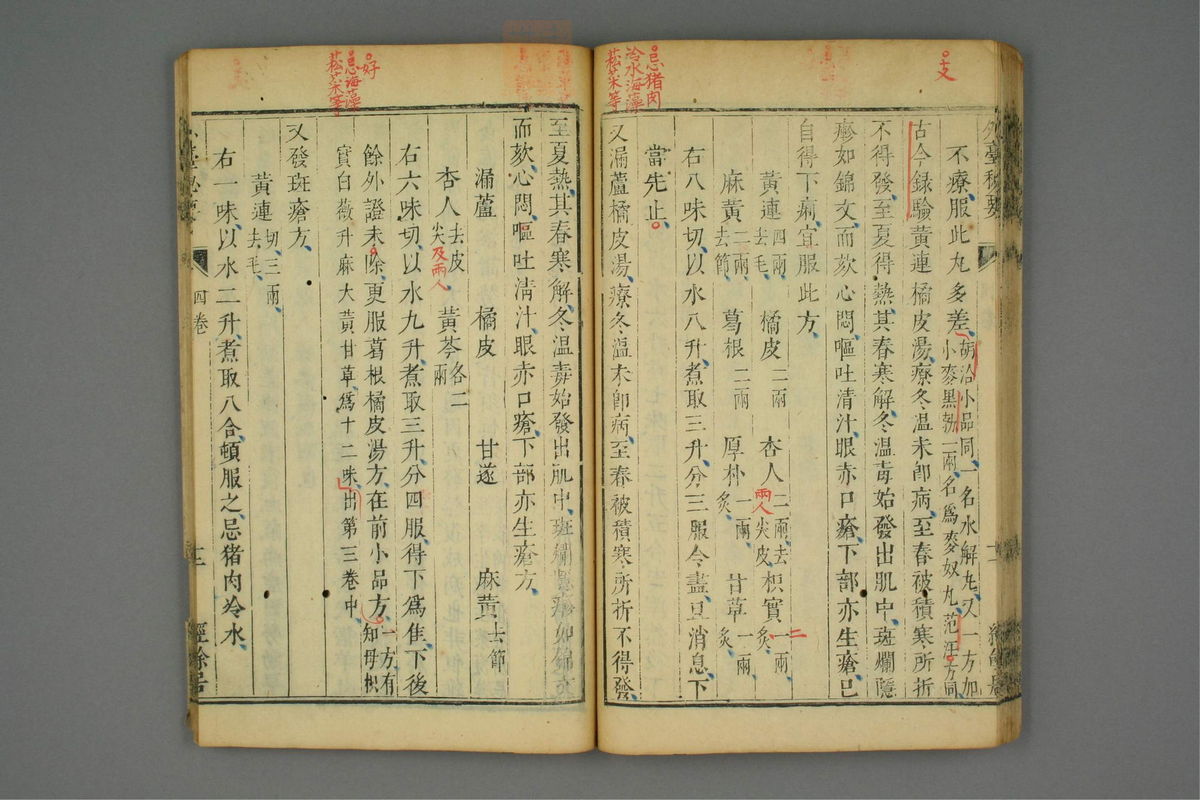 支
忌猪肉
冷水海藻
菘菜等
外臺秘要
不療服此丸多差胡洽小品同一名水解丸又一方加
小麥黑勃一兩名爲麥奴丸范汪方同
古今録驗黄連橘皮湯療冬溫未卽病至春被積寒所折
不得發至夏得熱其春寒解冬溫毒始發出肌中斑爛隱
疹如錦文而欬心悶嘔吐清汁眼赤口瘡下部亦生瘡已
自得下痢宜服此方
黄連四兩去毛 橘皮二兩 杏人二兩去尖皮 枳實一兩炙
兩人
二
麻黄二兩去節 葛根二兩 厚朴一兩炙 甘草一兩炙
右八味切以水八升煮取三升分三服令盡且消息下
當先止
又漏蘆橘皮湯療冬溫未卽病至春被積寒所折不得發
好
忌海藻
菘菜等
至夏熱其春寒解冬溫毒始發出肌中斑爛隱疹如錦文
而欬心悶嘔吐清汁眼赤口瘡下部亦生瘡方
漏蘆 橘皮 甘遂 麻黄去節
杏人去皮尖 黄芩各二兩
及兩人
右六味切以水九升煮取三升分四服得下爲佳下後
餘外證未除更服葛根橘皮湯方在前小品方一方有知母枳
實白薇升麻大黄甘草爲十二味出第三卷中
又發斑瘡方
黄連切三兩去毛
右一味以水二升煮取八合頓服之忌猪肉冷水
四卷
十二
經餘居